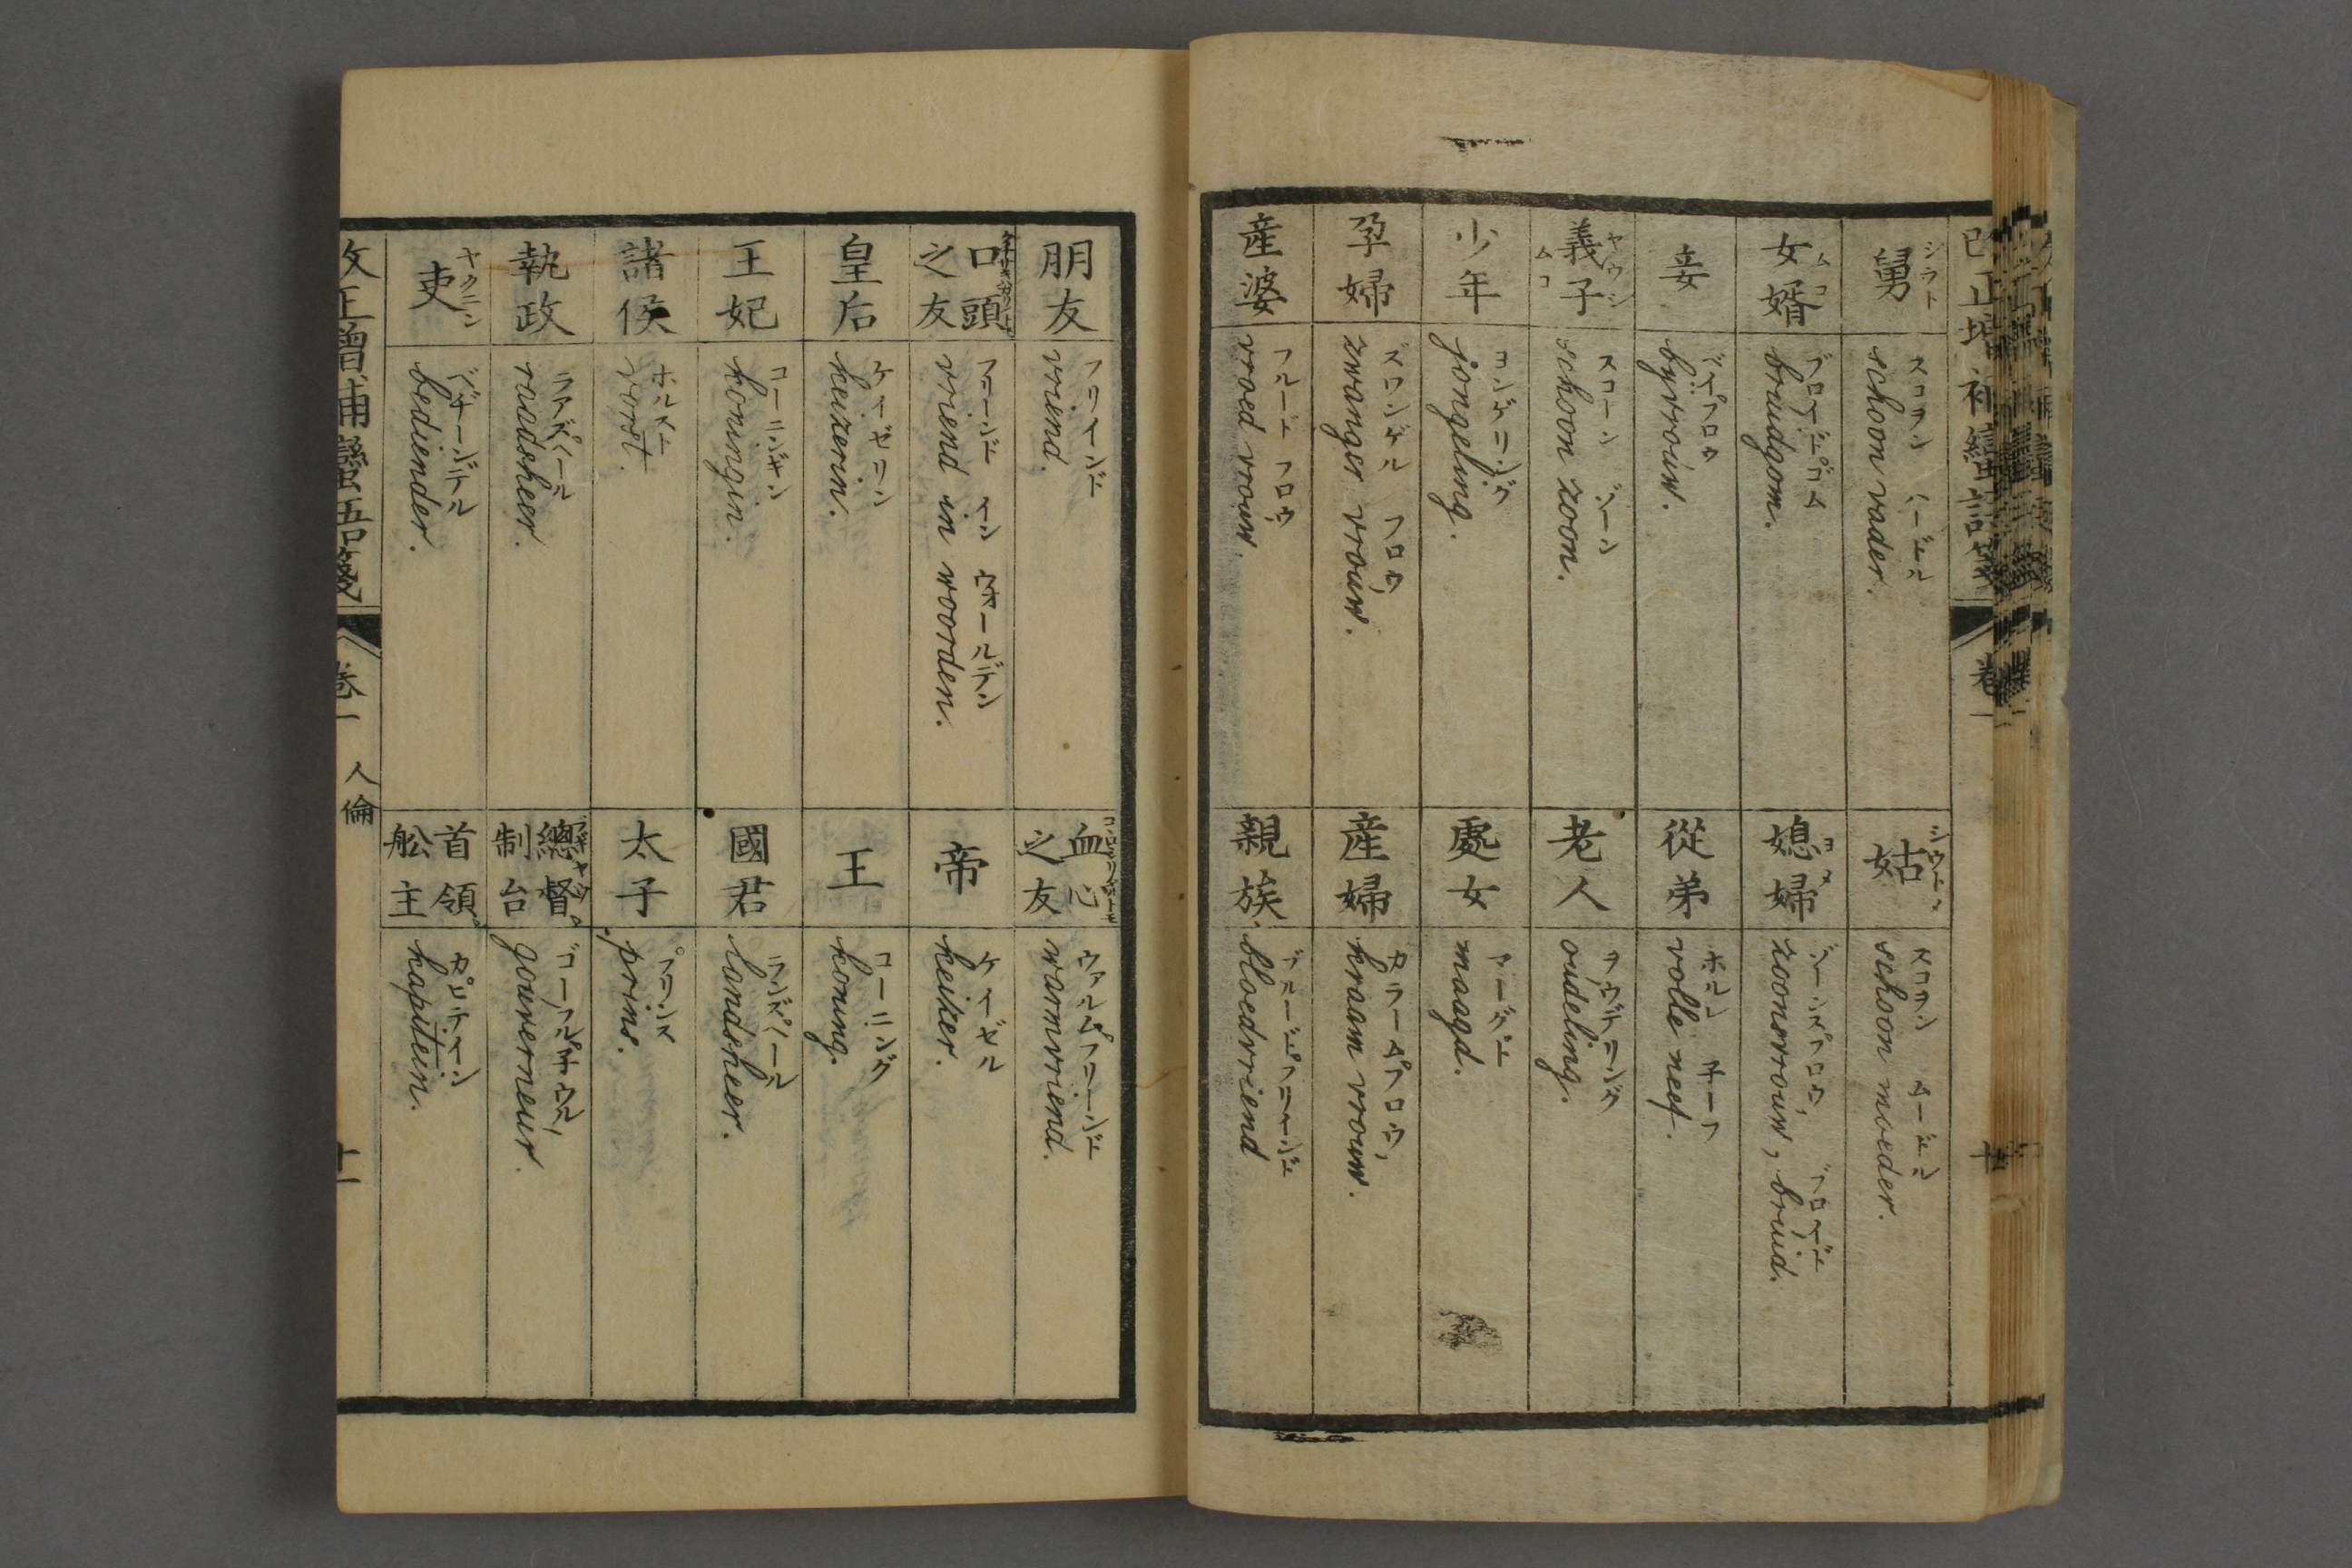 舅 シウト
スコヲン ハードル
schoon vader.
姑 シウトメ
スコヲン ムードル
schoon moeder.
女婿 ムコ
ブロイドゴム
bruidgom.
媳婦 ヨメ
ゾーンスフロウ ブロイド
zoonsvrouw, bruid.
妾
バイフロウ
byvrouw.
從弟
ホルレ 子ーフ
volle neef.
義子 ヤウシ ムコ
スコーン ゾーン
schoon zoon.
老人
ヲウデリング
oudeling.
少年
ヨンゲリング
jongeling.
處女
マーグド
maagd.
孕婦
ズワンゲル フロウ
zwanger vrouw.
産婦
カラームフロウ
kraam vrouw.
産婆
フルード フロウ
vroed vrouw.
親族
ブルードフリインド
bloedvriend
朋友
フリインド
vriend.
血心之友
ワァルムフリーンド
warmvriend.
口頭之友
フリーンド イン ウヲールデン
vriend in woorden.
帝
ケイゼル
keizer.
皇后
ケイゼリン
keizerin.
王
コーニング
koning.
王妃
コーニンギン
koningin.
國君
ランヅヘール
landsheer.
諸侯
ホルスト
vorst.
太子
プリンス
prins.
執政
ラアヅヘール
raadsheer.
總督 制台
ゴーフル子ウル
gouverneur.
吏 ヤクニン
ベヂーンデル
bediender.
首領 舩主
カピテイン
kapitein.
改正增補蠻語箋
卷一 人倫
十一